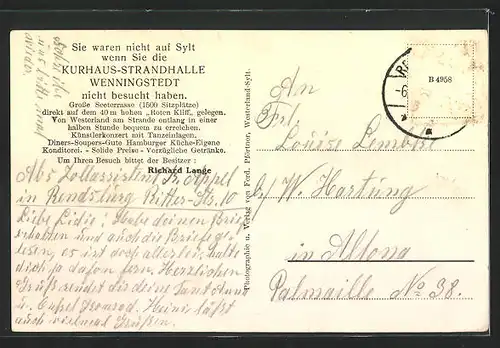 Sie waren nicht auf Sylt
wenn Sie die
KURHAUS-STRANDHALLE
WENNINGSTEDT
nicht besucht haben.
Große Seeterrasse (1500 Sitzplätze)
direkt auf dem 40 m hohen „Roten Kliff„ gelegen.
Von Westerland am Strande entlang in einer
halben Stunde bequem zu erreichen.
Künstlerkonzert mit Tanzeinlagen.
Diners-Soupers-Gute Hamburger Küche-Eigene
Konditorei. - Solide Preise - Vorzügliche Getränke.
Um Ihren Besuch bittet der Besitzer:
Richard Lange
Abs Zollassistent K. Appel
in Rendsburg Ritter-Str. 10
Liebe Lidie! Habe deinen Brief
erhalten und auch die Briefe ge-
lesen, es ist doch allerlei, halte
dich ja davon fern. Herzlichen
Gruß sendet dir deine Tant Anna
u. Onkel Heini läßt
auch vielmal Grüßen.
Photographie u. Verlag von Ferd. Pförtner, Westerland-Sylt.
B 4958
An
Frl. Louise
b/ W. Hartung
in Altona
Palmaille No 38.